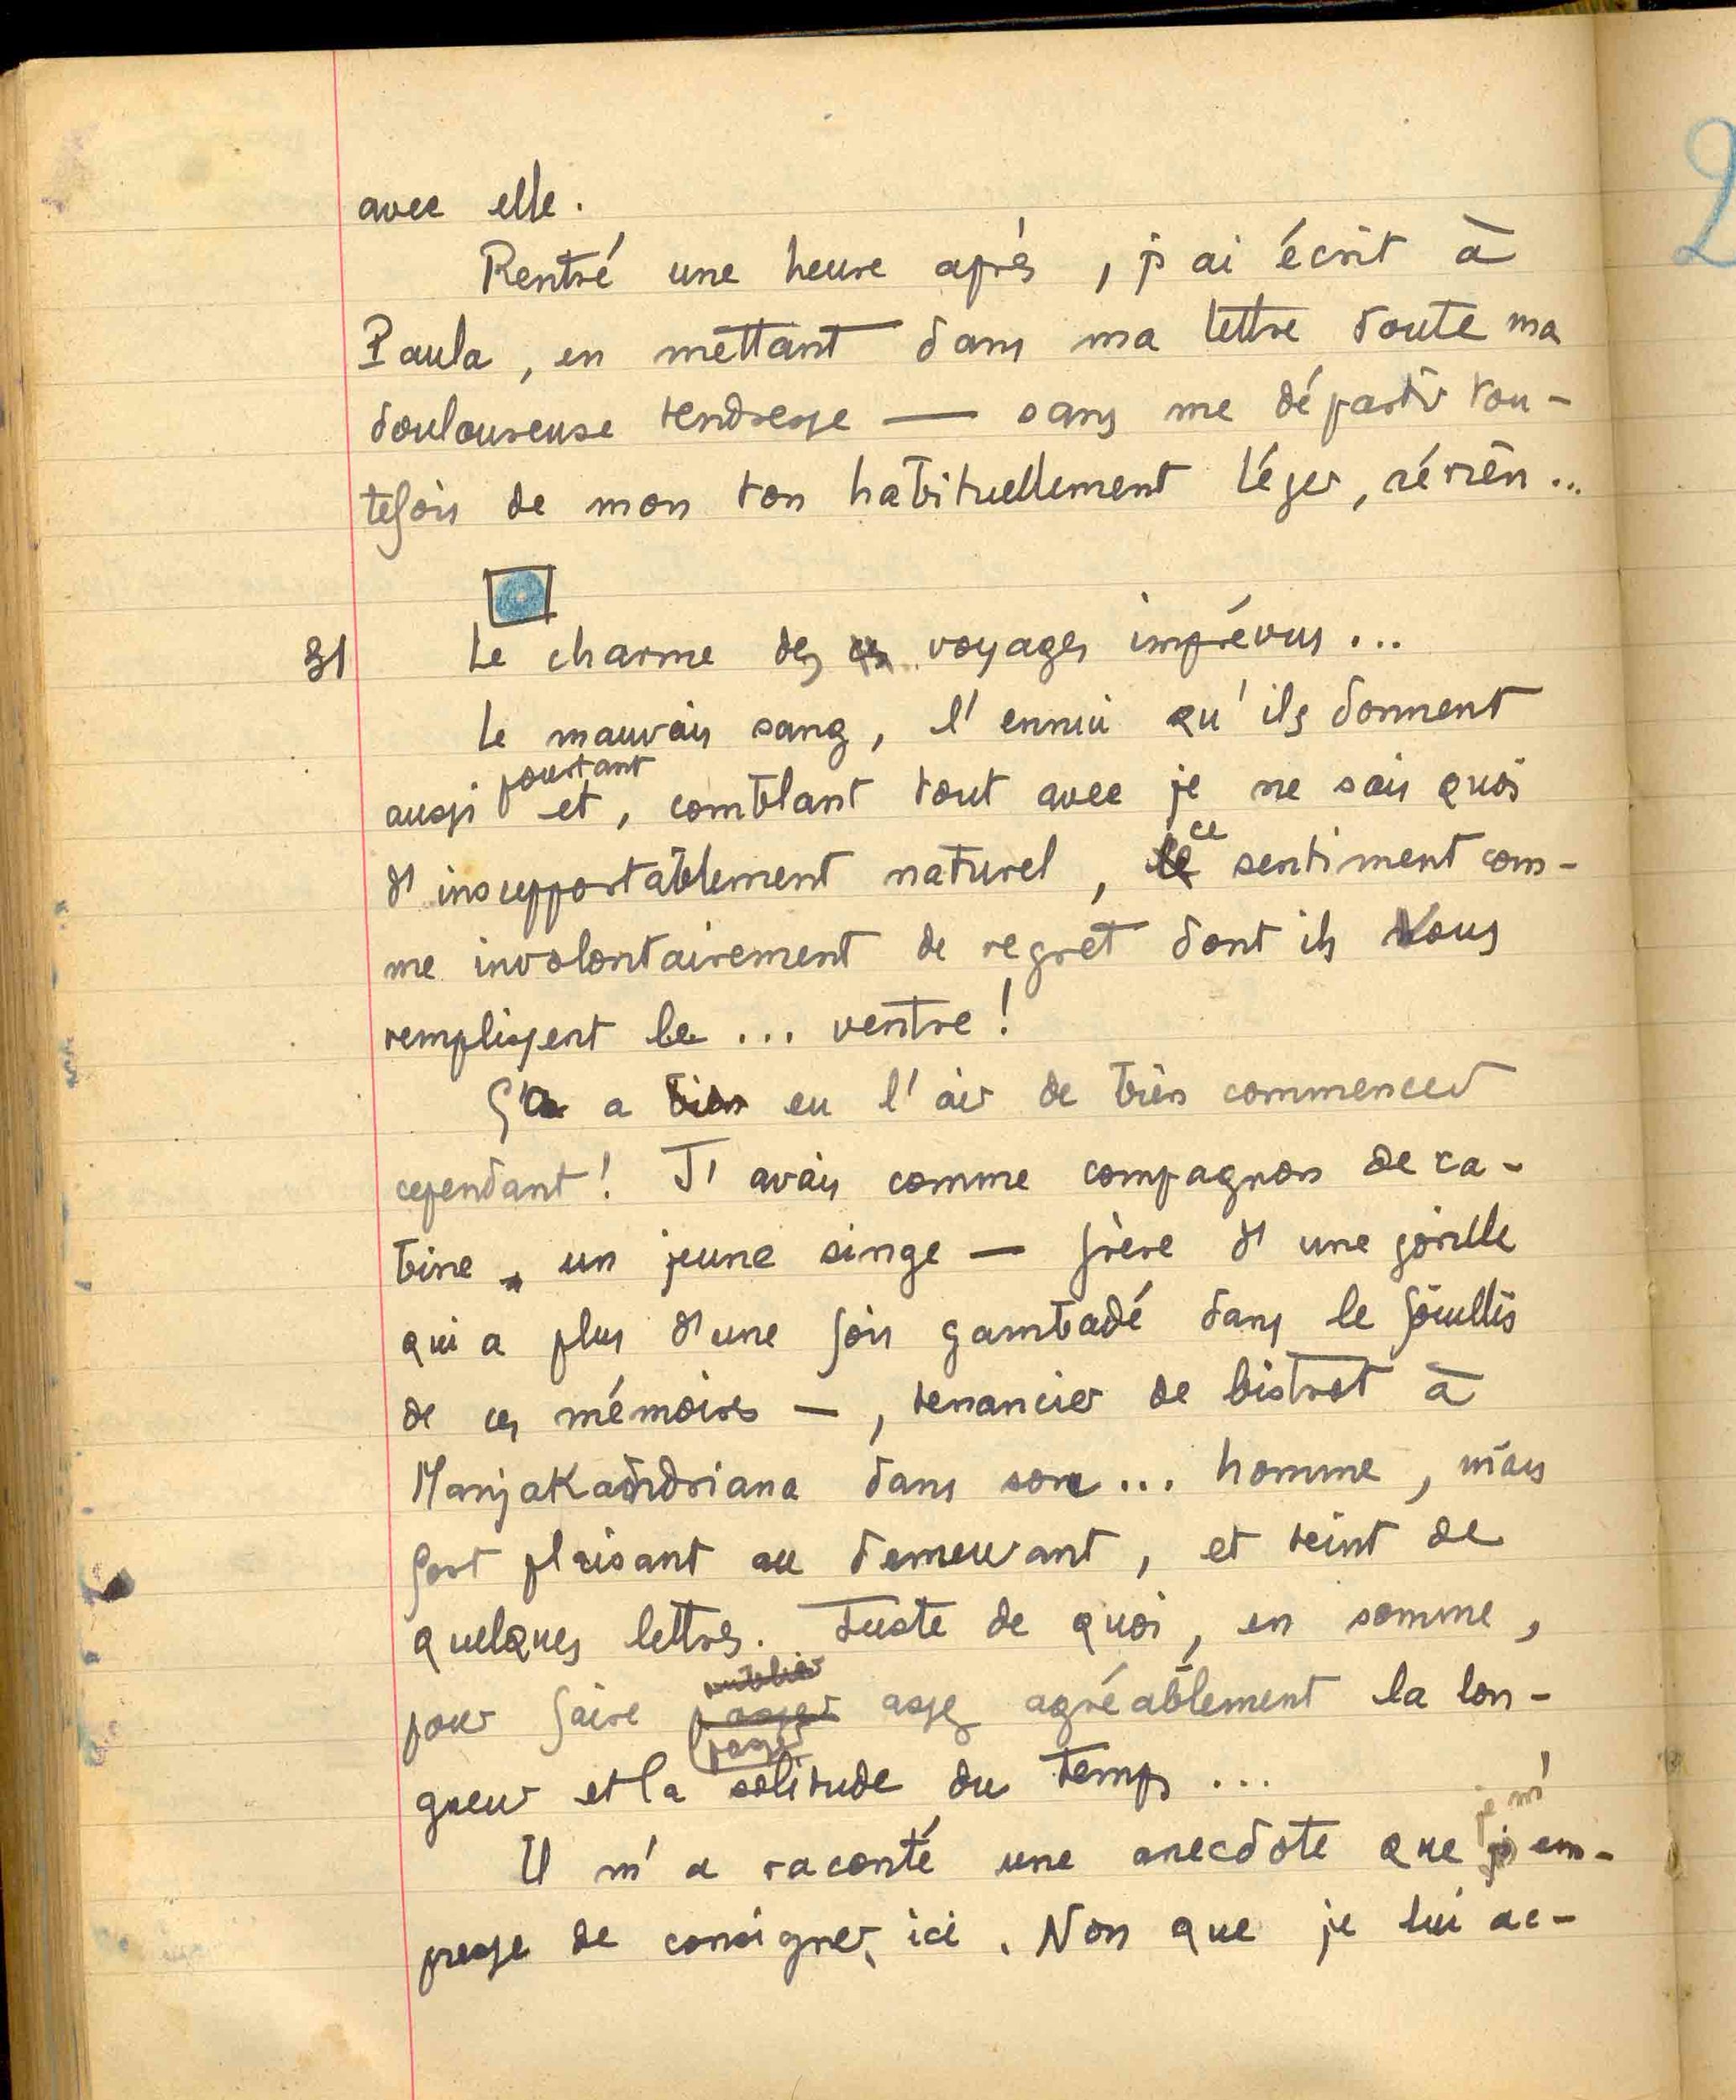 avec elle.
Rentré une heure après, j'ai écrit à
Paula, en mettant dans ma lettre toute ma
douloureuse tendresse — sans me départir tou-
tefois de mon ton habituellement léger, aérien...
31 Le charme des voyages imprévus...
Le mauvais sang, l'ennui qu'ils donnent
pourtant
aussi et, comblant tout avec je ne sais quoi
ce
d'insupportablement naturel, le sentiment com-
me involontairement de regret dont ils vous
remplissent le... ventre!
Ç'a a bien eu l'air de bien commencer
cependant! J'avais comme compagnon de ca-
bine un jeune singe — frère d'une gorille
qui a plus d'une fois gambadé dans le fouillis
de ces mémoires —, tenancier de bistrot à
Manjakandriana dans son... homme, mais
fort plaisant au demeurant, et teint de
quelques lettres. Juste de quoi, en somme,
oublier
pour faire passer assez agréablement la lon-
passer
gueur et la solitude du temps...
je m'
Il m'a raconté une anecdote que j'em-
presse de consigner ici. Non que je lui ac-
2